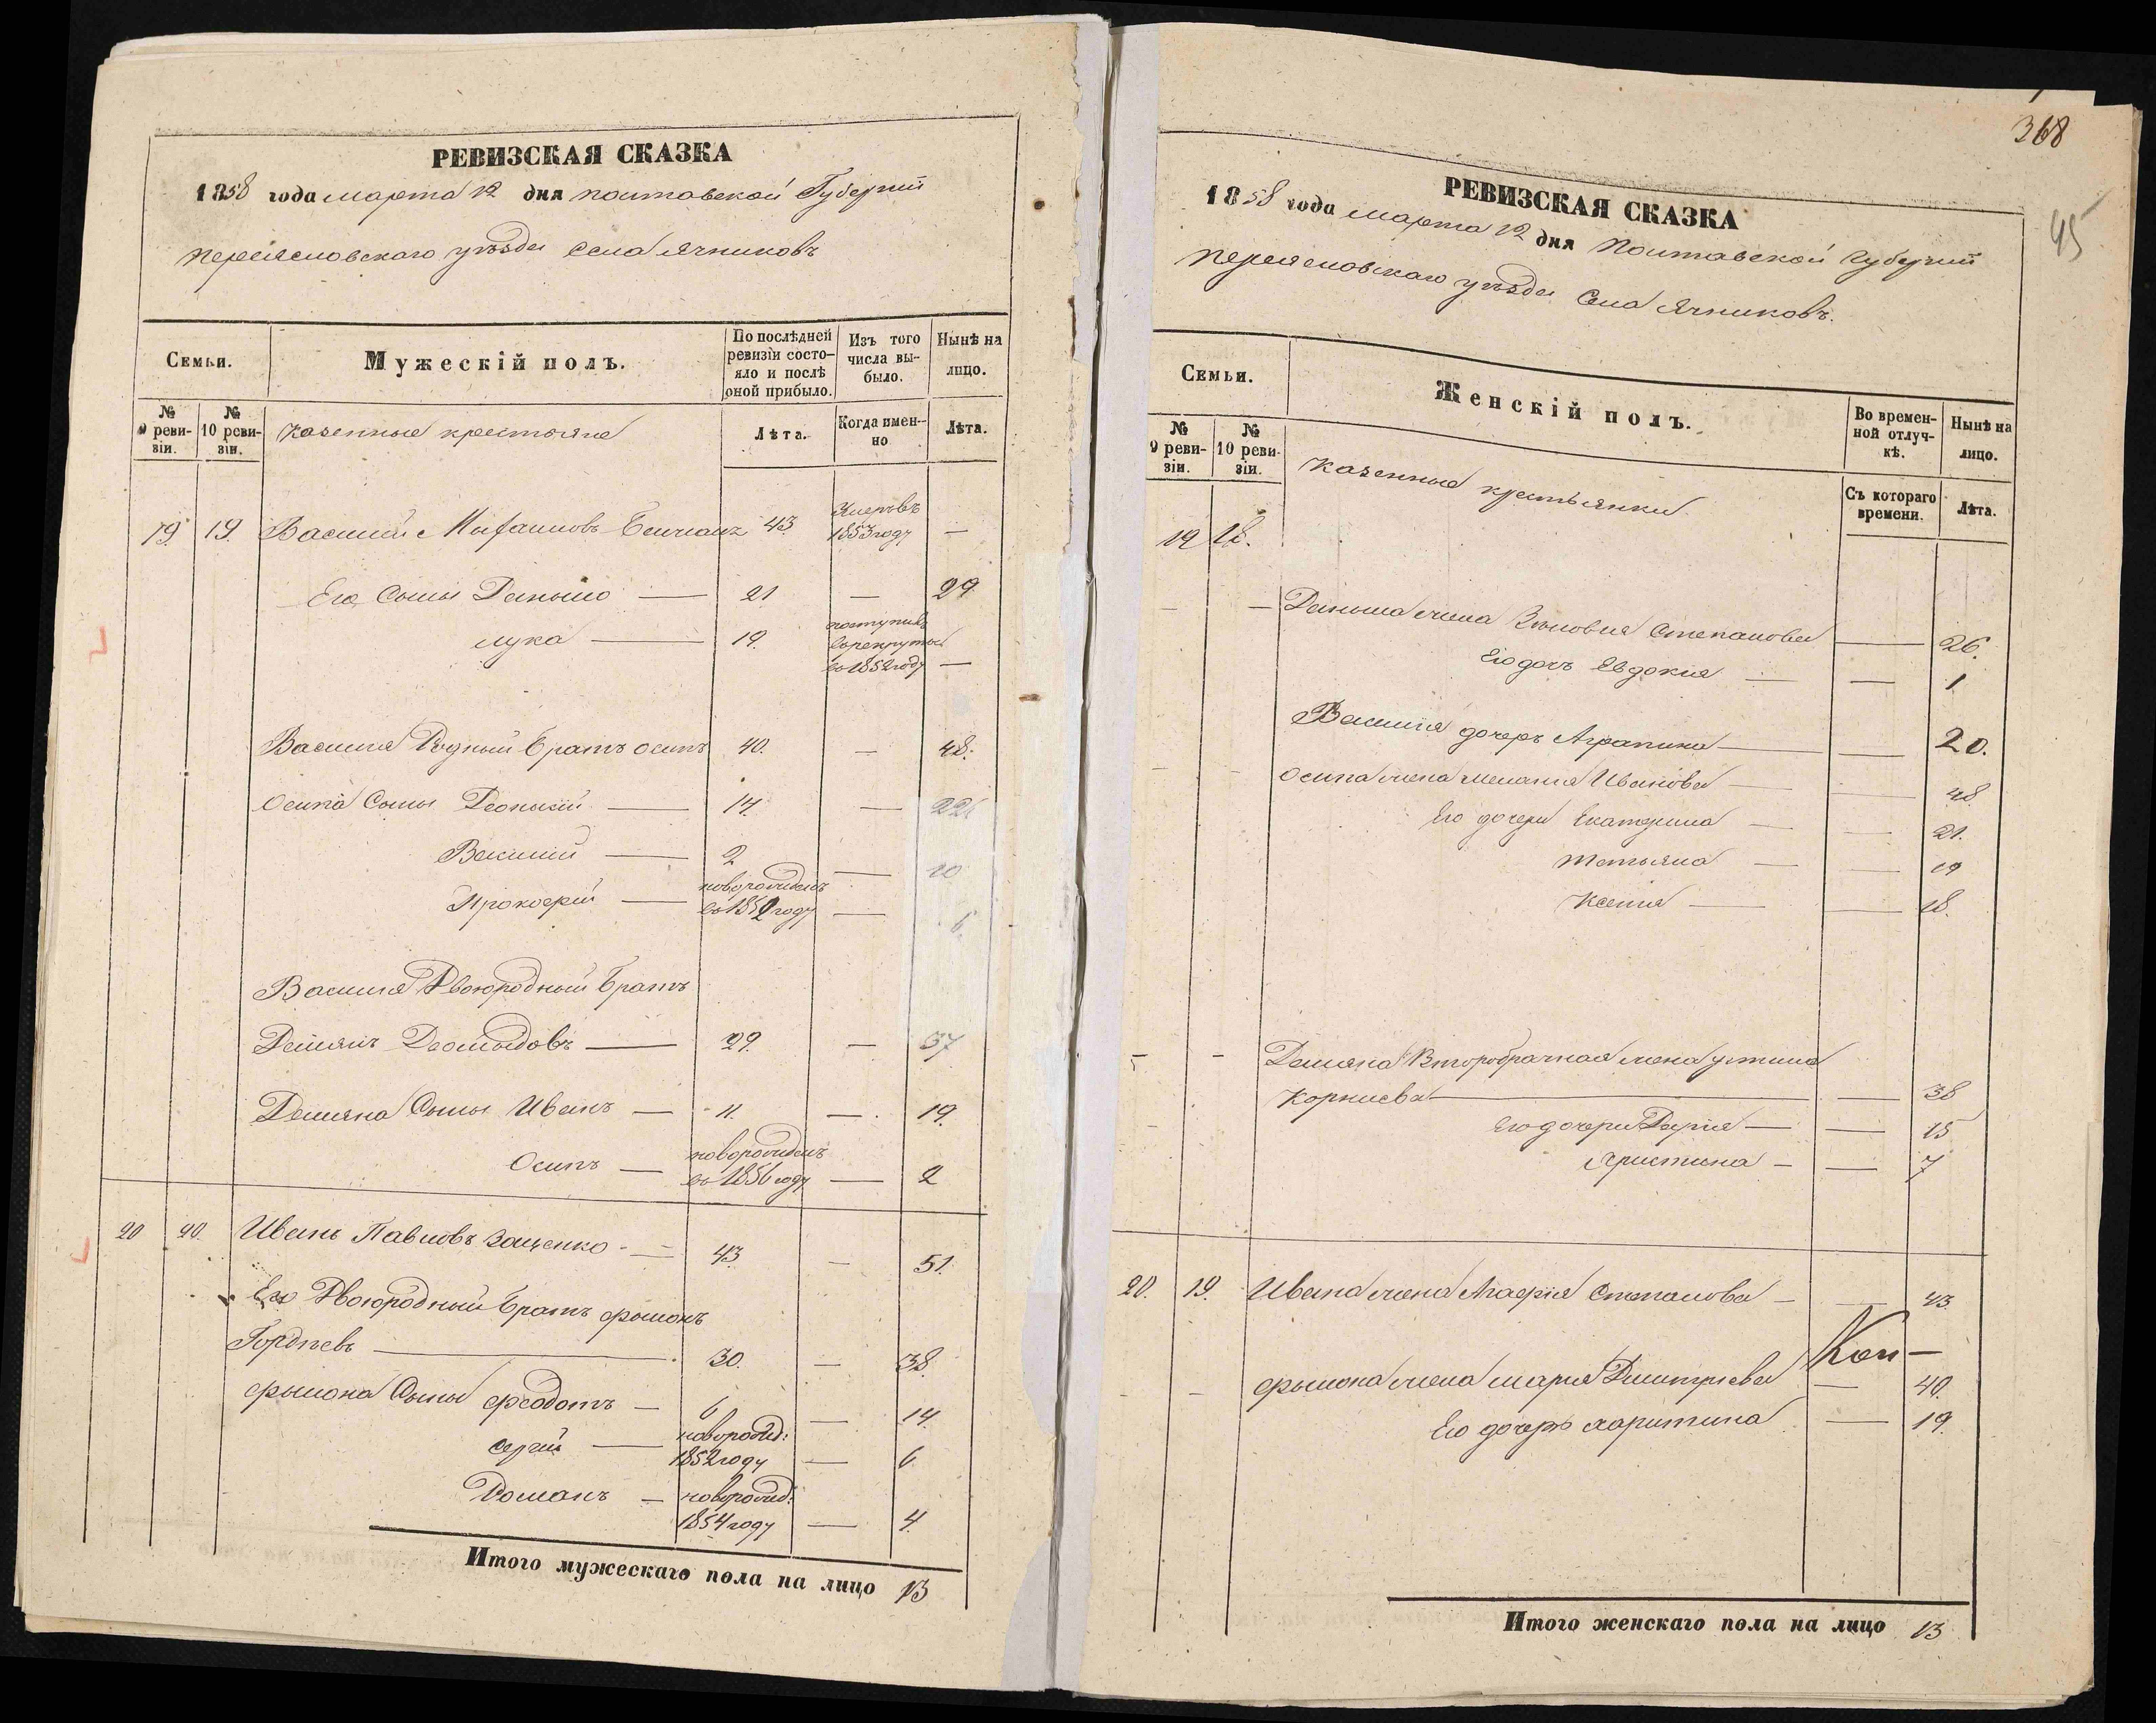 РЕВИЗСКАЯ СКАЗКА
1858 года марта 12 дня Полтавской Губернии
Переяславского уѣзда села Ячниковъ
Семьи.
Мужескій полъ.
По послѣдней ревизіи состо-яло и послѣ оной прибыло.
Изъ того числа вы-было.
Нынѣ на лицо.
№ 9 реви-зіи.
№ 10 реви-зіи.
Казенные крестьяне
Лѣта.
Когда имен-но
Лѣта.
19. 19. Василий 43. Умеръ въ 1853 году —
Его Сыны — 21 — 29
Лука — 19. поступилъ въ рекруты въ 1852 году —
Василия Родный братъ Осипъ 40. — 48.
Осипа Сыны — 14. — 22
Василий — 2 — 10
Прокофий — новорожденъ въ 1852 году — 6
Василия Двоюродный братъ
Демянъ Деомидовъ — 29. — 37
Демяна Сыны Иванъ — 11. — 19.
Осипъ — новорожденъ въ 1856 году — 2
20 20. Иванъ Павловъ — 43 — 51.
Его Двоюродный братъ Фылонъ
Гордѣевъ — 30. — 38.
Фылона Сыны Феодотъ — 6 — 14.
Сергий — новорожд: 1852 году — 6
Романъ — новорожд: 1854 году — 4.
Итого мужескаго пола на лицо 13
368
45
РЕВИЗСКАЯ СКАЗКА
1858 года марта 12 дня Полтавской Губернии
Переяславского уѣзда Села Ячниковъ.
Семьи.
Женскій полъ.
Во времен-ной отлуч-кѣ.
Нынѣ на лицо.
№ 9 реви-зіи.
№ 10 реви-зіи.
Казенные крестьянки
Съ котораго времени.
Лѣта.
19 18.
— — жена Степанова — 26.
Его дочь Евдокия — — 1
Василия дочерь Аграпина — — 20.
Осипа жена Мелания Иванова — — 48
Его дочери Екатерина — — 21.
Татьяна — — 19
Ксения — — 18.
- - Демяна Второбрачная жена Устина
Корниева — — 38
Его дочери Дария — — 15
Христина — — 7
20. 19. Ивана жена Агафия Степанова — — 43
- - Фылона жена Мария Дмитриева — 40.
Его дочерь Харитина — 19.
Итого женскаго пола на лицо 13